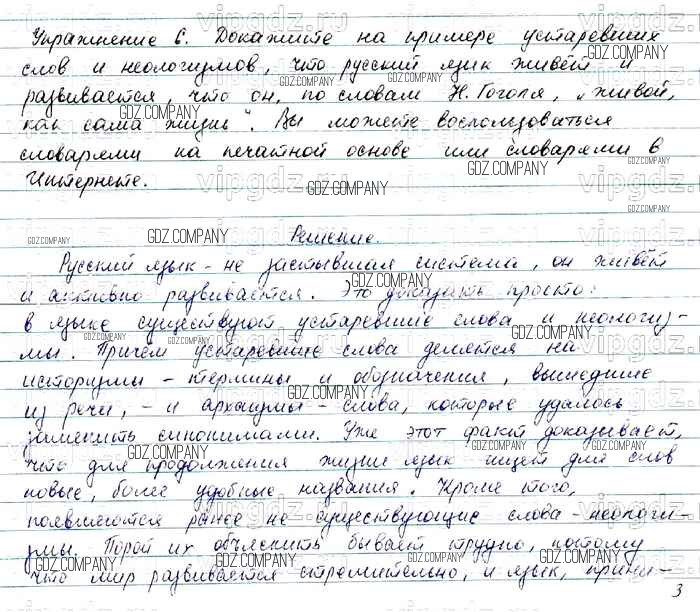 Упражнение 6. Докажите на примере устаревших
слов и неологизмов, что русский язык живёт и
развивается, что он, по словам Н. Гоголя, „живой,
как сама жизнь". Вы можете воспользоваться
словарями на печатной основе или словарями в
Интернете.
Решение.
Русский язык - не застывшая система, он живёт
и активно развивается. Это доказать просто:
в языке существуют устаревшие слова и неологиз-
мы. Причём устаревшие слова делятся на
историзмы - термины и обозначения, вышедшие
из речи, - и архаизмы - слова, которые удалось
заменить синонимами. Уже этот факт доказывает,
что для продолжения жизни язык ищет для слов
новые, более удобные названия. Кроме того,
появляются ранее не существующие слова - неологи-
змы. Порой их объяснить бывает трудно, потому
что мир развивается стремительно, и язык, прини-
3
vipgdz.ru
GDZ.COMPANY